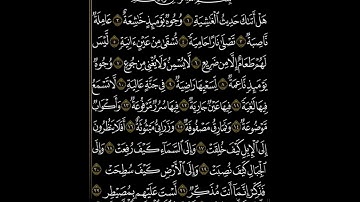 هَلْ أَتَىٰكَ حَدِيثُ ٱلْغَٰشِيَةِ ١ وُجُوهٌ يَوْمَئِذٍ خَٰشِعَةٌ ٢ عَامِلَةٌ
نَّاصِبَةٌ ٣ تَصْلَىٰ نَارًا حَامِيَةً ٤ تُسْقَىٰ مِنْ عَيْنٍ ءَانِيَةٍ ٥ لَّيْسَ
لَهُمْ طَعَامٌ إِلَّا مِن ضَرِيعٍ ٦ لَّا يُسْمِنُ وَلَا يُغْنِى مِن جُوعٍ ٧ وُجُوهٌ
يَوْمَئِذٍ نَّاعِمَةٌ ٨ لِّسَعْيِهَا رَاضِيَةٌ ٩ فِى جَنَّةٍ عَالِيَةٍ ١٠ لَّا تَسْمَعُ
فِيهَا لَٰغِيَةً ١١ فِيهَا عَيْنٌ جَارِيَةٌ ١٢ فِيهَا سُرُرٌ مَّرْفُوعَةٌ ١٣ وَأَكْوَابٌ
مَّوْضُوعَةٌ ١٤ وَنَمَارِقُ مَصْفُوفَةٌ ١٥ وَزَرَابِىُّ مَبْثُوثَةٌ ١٦ أَفَلَا يَنظُرُونَ
إِلَى ٱلْإِبِلِ كَيْفَ خُلِقَتْ ١٧ وَإِلَى ٱلسَّمَآءِ كَيْفَ رُفِعَتْ ١٨ وَإِلَى
ٱلْجِبَالِ كَيْفَ نُصِبَتْ ١٩ وَإِلَى ٱلْأَرْضِ كَيْفَ سُطِحَتْ
٢٠ فَذَكِّرْ إِنَّمَآ أَنتَ مُذَكِّرٌ ٢١ لَّسْتَ عَلَيْهِم بِمُصَيْطِرٍ